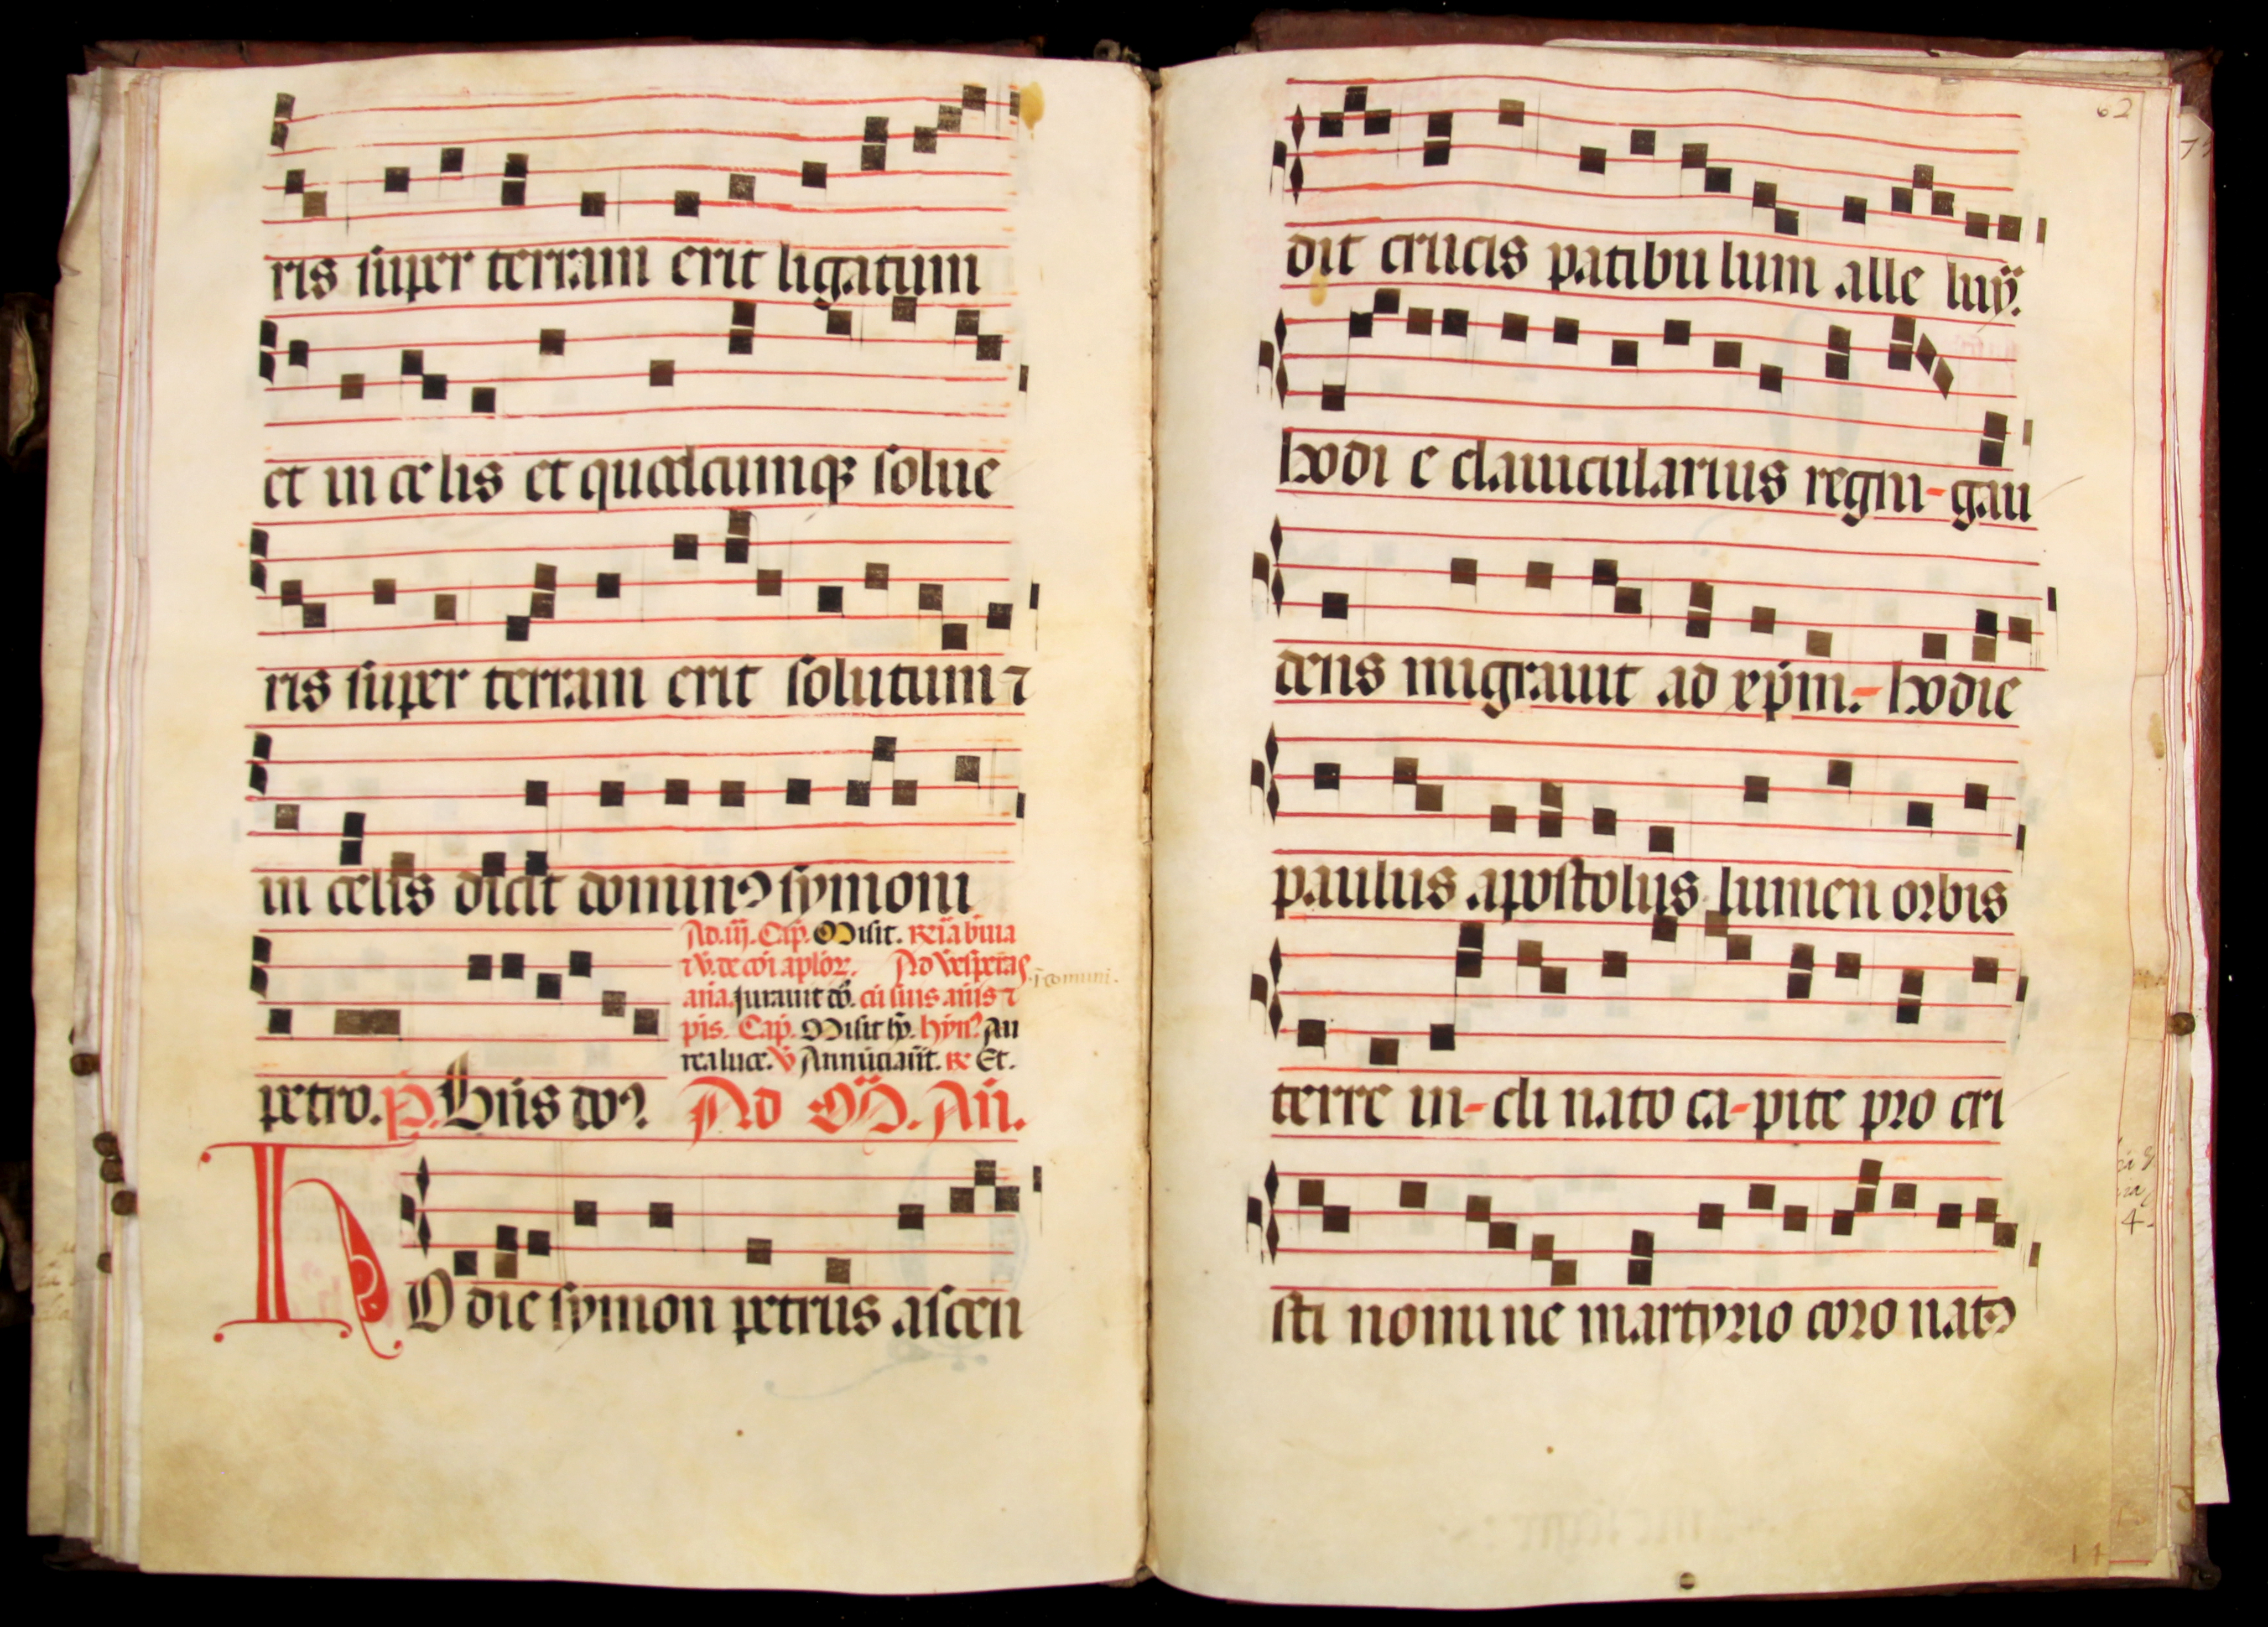 ris super terram erit ligatum
et in celis et quodcumqꝫ solue
ris super terram erit solutum ⁊
in celis dicit dominꝰ symoni
Ad .iij. Cap̄. Misit.
Ad vesperas
aña. Jurauit do. cū suis añis ⁊
p̄is. Cap̄. Misit hy. hyn̄ꝰ. Au
rea luce. v̄ Annūciauīt. ꝶ Et.
petro. p̄. Bn̄s doꝰ. Ad M̄. Añ.
HO die symon petrus ascen
62
dit crucis patibu lum alle luÿ.
hodi e clauicularius regni - gau
dens migrauit ad xp̄m. - hodie
paulus apostolus lumen orbis
terre in - cli nato ca - pite pro cri
sti nomi ne martyrio coro natꝰ